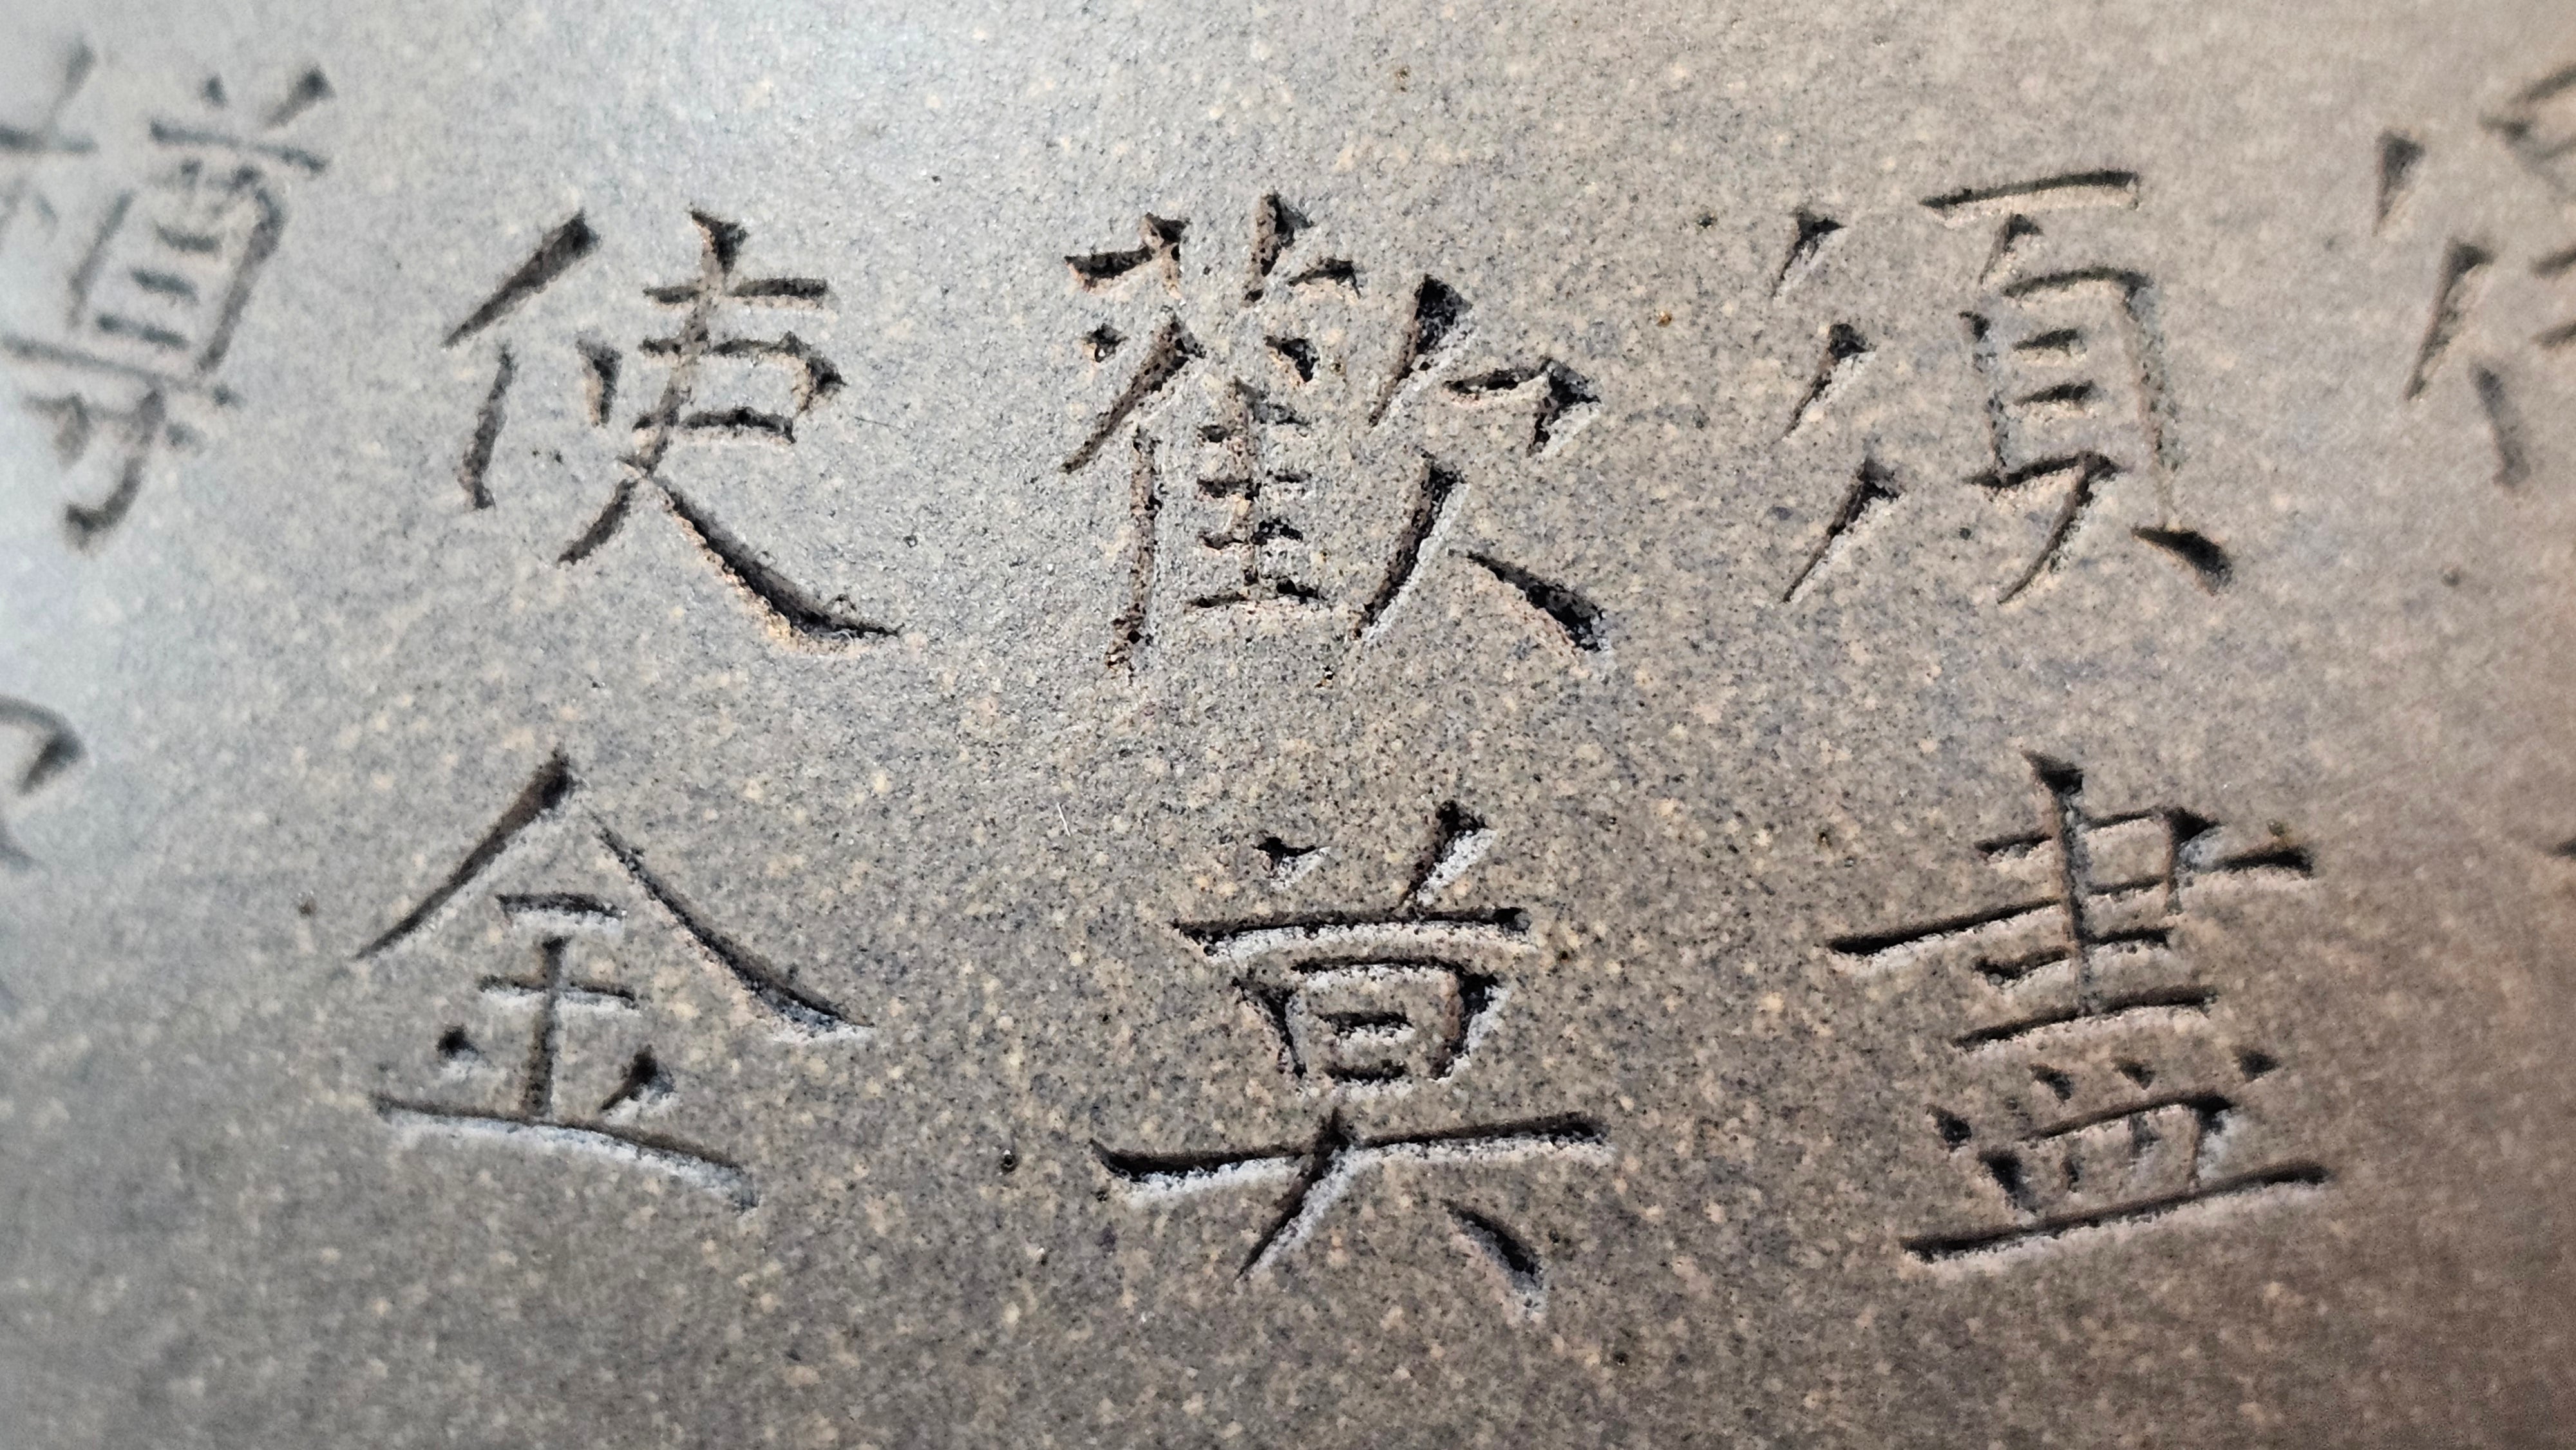 須盡
歡莫
使金
樽